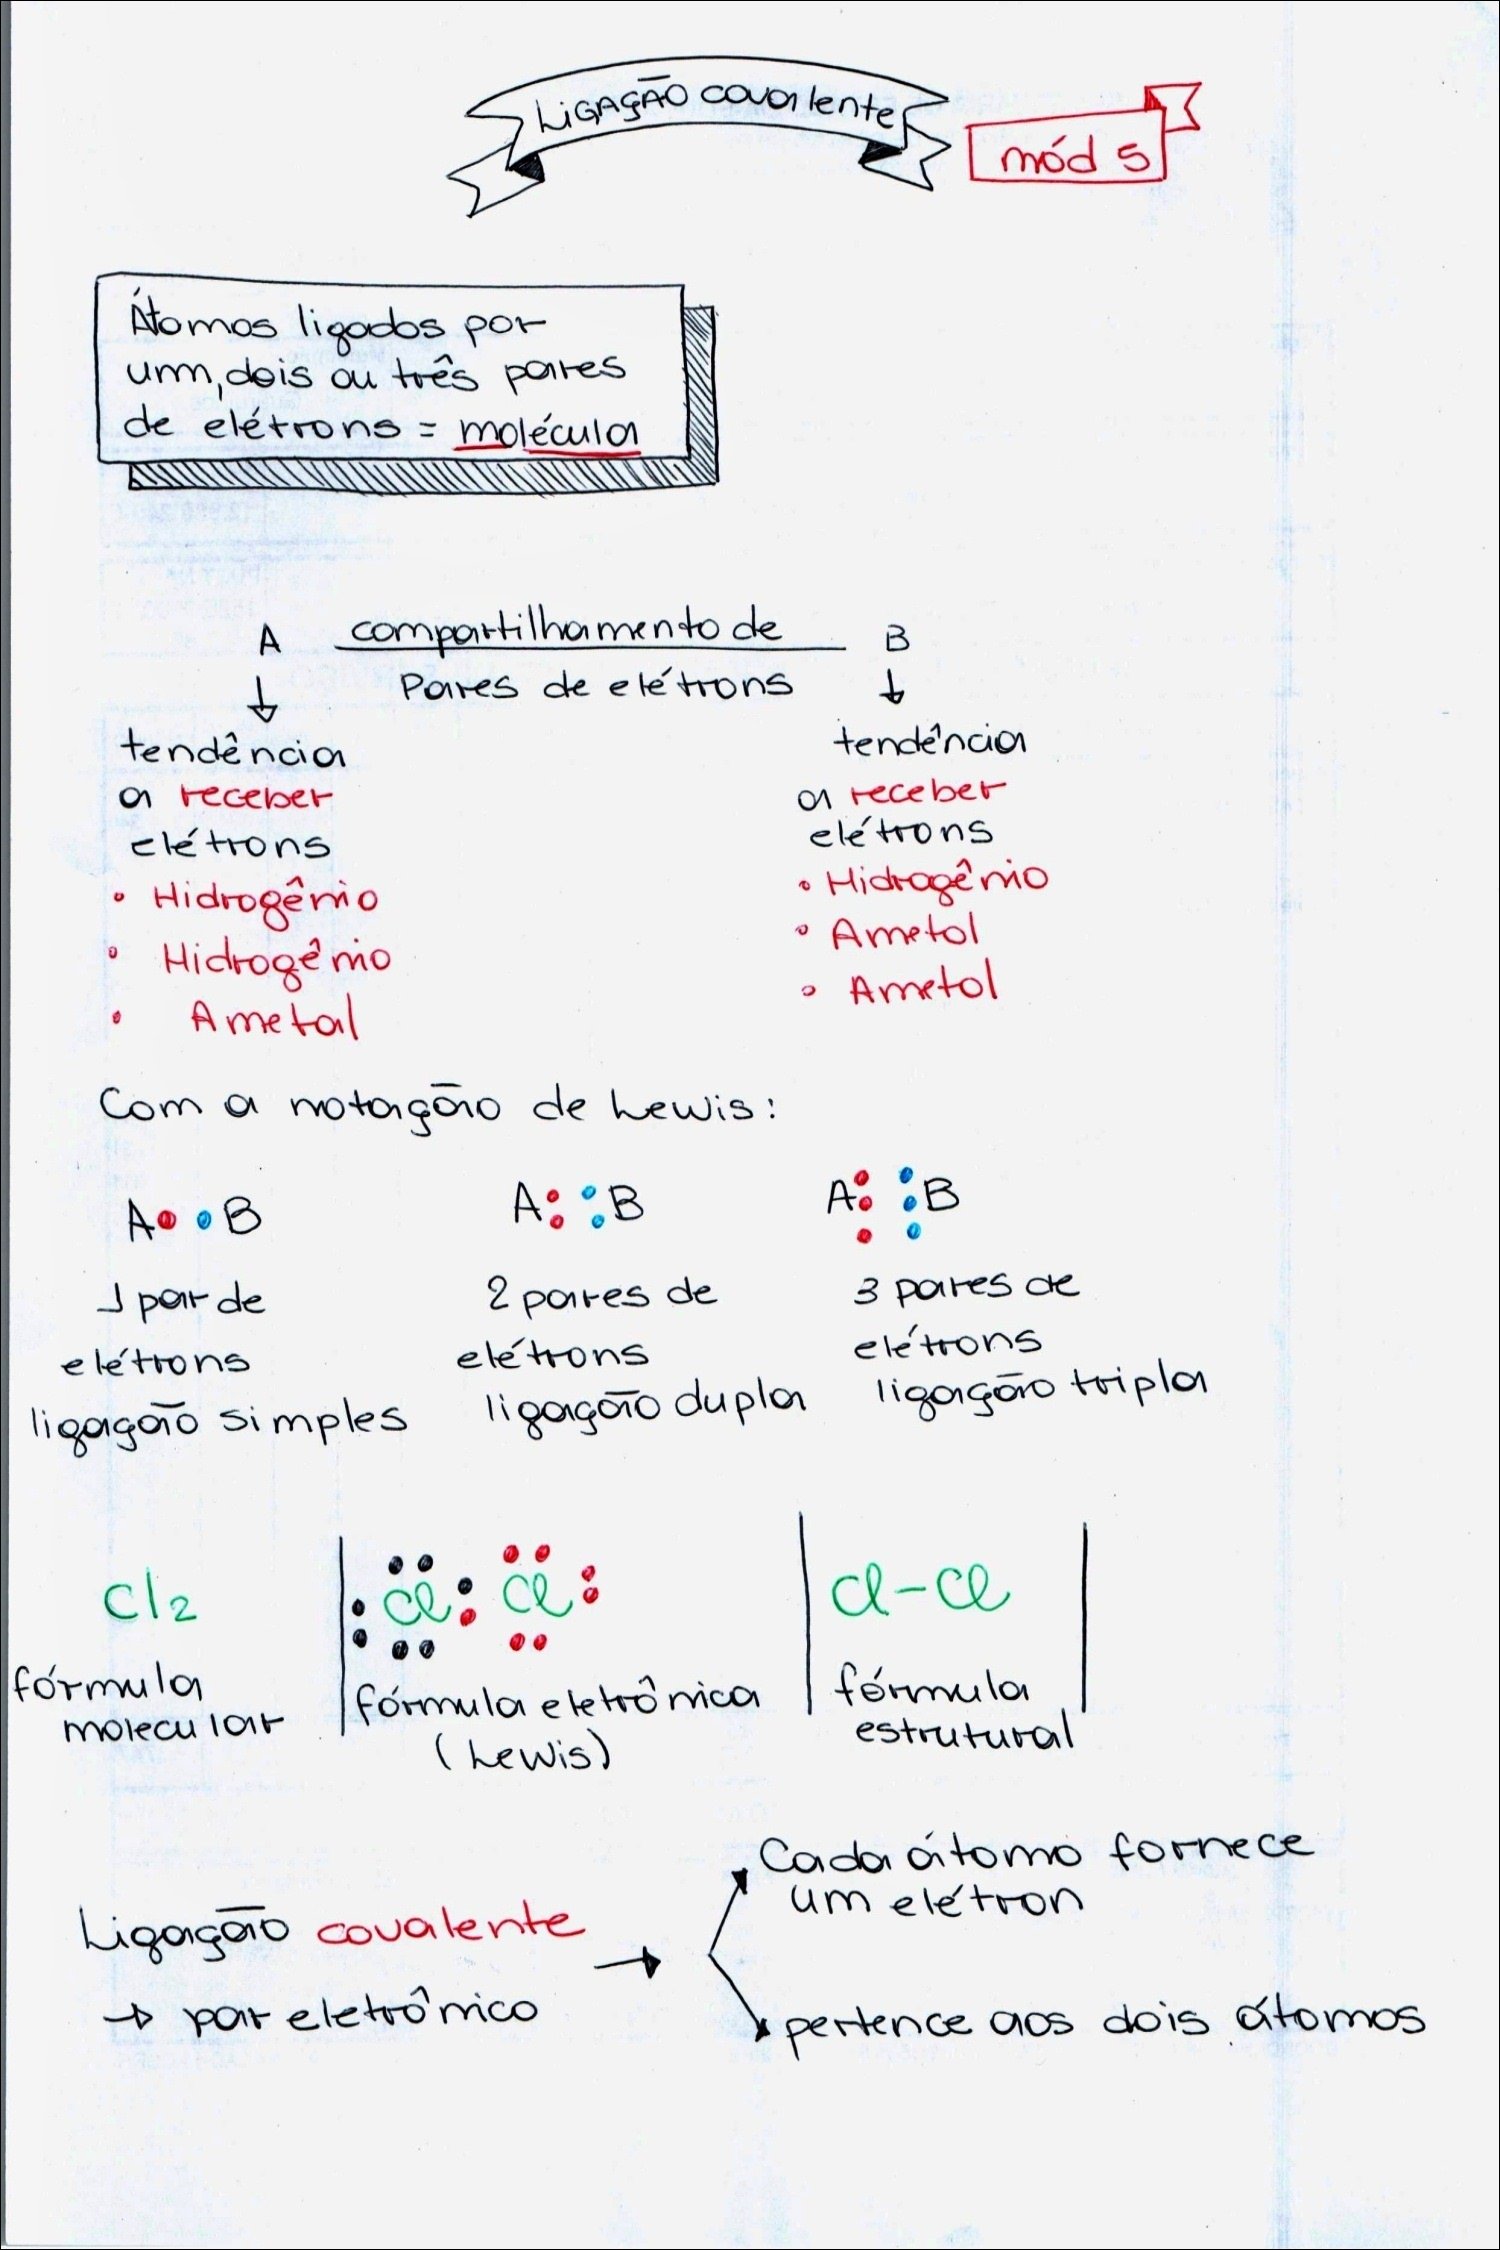 LIGAÇÃO covalente
mód 5
Átomos ligados por
um, dois ou três pares
de elétrons = molécula
A compartilhamento de B
Pares de elétrons
tendência
a receber
elétrons
• Hidrogênio
• Hidrogênio
• Ametal
tendência
a receber
elétrons
• Hidrogênio
• Ametal
• Ametal
Com a notação de Lewis:
A• •B
A: :B
A⋮ ⋮B
1 par de
elétrons
ligação simples
2 pares de
elétrons
ligação dupla
3 pares de
elétrons
ligação tripla
Cl2
fórmula
molecular
Cl Cl
fórmula eletrônica
(Lewis)
Cl-Cl
fórmula
estrutural
Ligação covalente
→ par eletrônico
→ Cada átomo fornece
um elétron
pertence aos dois átomos